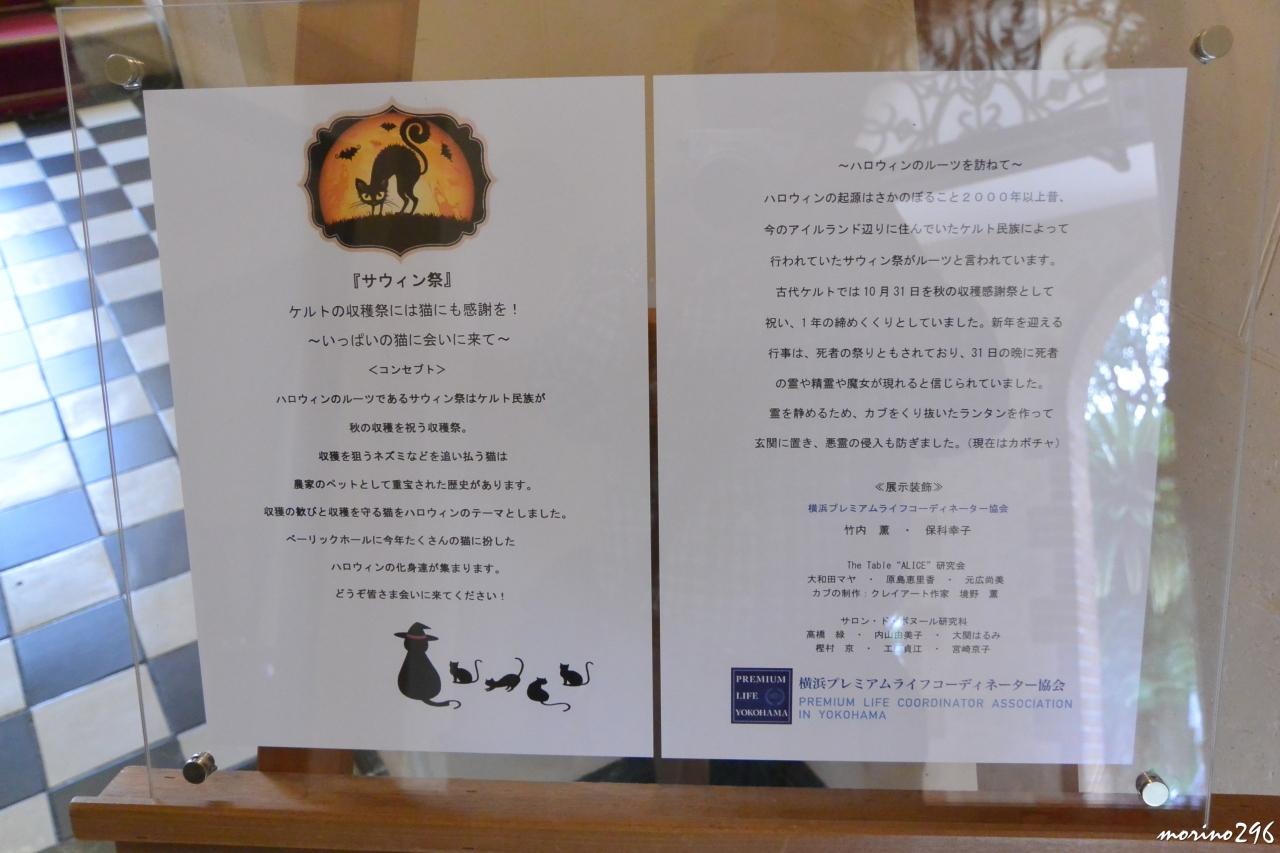 『サウィン祭』
ケルトの収穫祭には猫にも感謝を！
～いっぱいの猫に会いに来て～
＜コンセプト＞
ハロウィンのルーツであるサウィン祭はケルト民族が
秋の収穫を祝う収穫祭。
収穫を狙うネズミなどを追い払う猫は
農家のペットとして重宝された歴史があります。
収穫の歓びと収穫を守る猫をハロウィンのテーマとしました。
ベーリックホールに今年たくさんの猫に扮した
ハロウィンの化身達が集まります。
どうぞ皆さま会いに来てください！
～ハロウィンのルーツを訪ねて～
ハロウィンの起源はさかのぼること２０００年以上昔、
今のアイルランド辺りに住んでいたケルト民族によって
行われていたサウィン祭がルーツと言われています。
古代ケルトでは10月31日を秋の収穫感謝祭として
祝い、1年の締めくくりとしていました。新年を迎える
行事は、死者の祭りともされており、31日の晩に死者
の霊や精霊や魔女が現れると信じられていました。
霊を静めるため、カブをくり抜いたランタンを作って
玄関に置き、悪霊の侵入も防ぎました。（現在はカボチャ）
≪展示装飾≫
横浜プレミアムライフコーディネーター協会
竹内　薫　・　保科幸子
The Table “ALICE” 研究会
大和田マヤ　・　原島恵里香　・　元広尚美
カブの制作：クレイアート作家　境野　薫
サロン・ド・ボヌール研究科
高橋　緑　・　内山由美子　・　大関はるみ
樫村　京　・　工　貞江　・　宮崎京子
PREMIUM
LIFE
YOKOHAMA
横浜プレミアムライフコーディネーター協会
PREMIUM LIFE COORDINATOR ASSOCIATION
IN YOKOHAMA
morino296